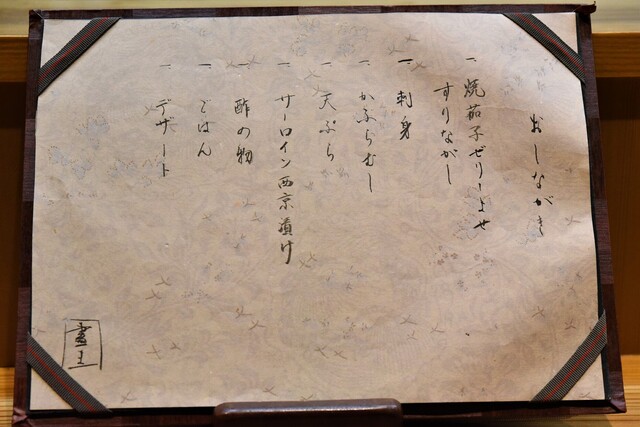 おしながき
一 焼茄子ゼリーよせ
すりながし
一 刺身
一 かぶらむし
一 天ぷら
一 サーロイン西京漬け
一 酢の物
一 ごはん
一 デザート